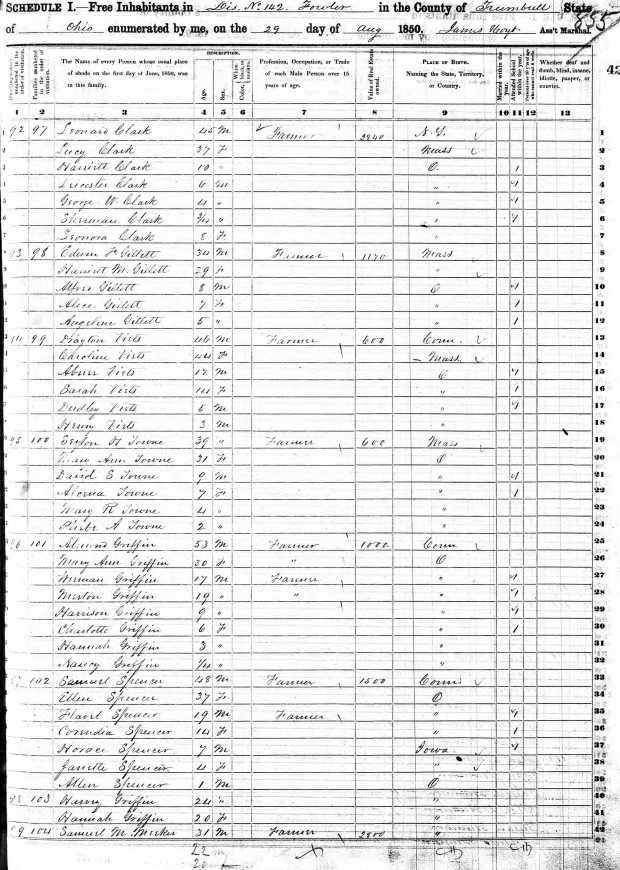 SCHEDULE I.—Free Inhabitants in Dis. No 142 Fowler in the County of Trumbull State
of Ohio enumerated by me, on the 29 day of Aug 1850. James Hoyt Ass't Marshal.
835
42
DESCRIPTION.
The Name of every Person whose usual place of abode on the first day of June, 1850, was in this family.
Age. Sex.
Profession, Occupation, or Trade of each Male Person over 15 years of age.
Value of Real Estate owned.
PLACE OF BIRTH. Naming the State, Territory, or Country.
Married within the year.
Attended School within the year.
Whether deaf and dumb, blind, insane, idiotic, pauper, or convict.
1 2 3 4 5 6 7 8 9 10 11 12 13
92 97 Leonard Clark 45 M Farmer 2840 N.Y. 1
Lucy Clark 37 F Mass 2
Harriett Clark 10 " O. 1 3
Leicester Clark 6 M " 1 4
George W Clark 4 " " 1 5
Sherman Clark " " 1 6
Leonora Clark 8 F " 7
93 98 Edwin F Gillett 34 M Farmer 1170 Mass 8
Harriet M. Gillett 29 F " 9
Gillett 8 M O 1 10
Alice Gillett 7 F " 1 11
Angeline Gillett 5 " " 1 12
94 99 Drayton Virts 46 M Farmer 600 Conn 13
Caroline Virts 44 F Mass 14
Abner Virts 12 M O 1 15
Sarah Virts 14 F " 1 16
Dudley Virts 5 M " 1 17
Henry Virts 3 M " 18
95 100 H Towne 39 " Farmer 600 Mass 19
Mary Ann Towne 31 F O 20
David E Towne 9 M " 1 21
Towne 7 F " 1 22
Mary R Towne 4 " " 23
Phebe A Towne 2 " " 24
96 101 Griffin 53 M Farmer 1000 Conn 25
Mary Ann Griffin 30 F " O 26
Griffin 17 M Farmer " 1 27
Merton Griffin 19 " " " 1 28
Harrison Griffin 9 " " 1 29
Charlotte Griffin 6 F " 1 30
Hannah Griffin 3 " " 31
Nancy Griffin " " 32
97 102 Samuel Spencer 48 M Farmer 1500 Conn 33
Ellen Spencer 37 F O 34
Spencer 19 M Farmer " 1 35
Spencer 14 F " 1 36
Horace Spencer 7 M Iowa 1 37
Janette Spencer 4 F " 38
Allen Spencer 1 M O 39
98 103 Harvy Griffin 24 " " 40
Hannah Griffin 20 F " 41
99 104 Samuel M. Meeker 31 M Farmer 2800 " 42
22 m
20 f